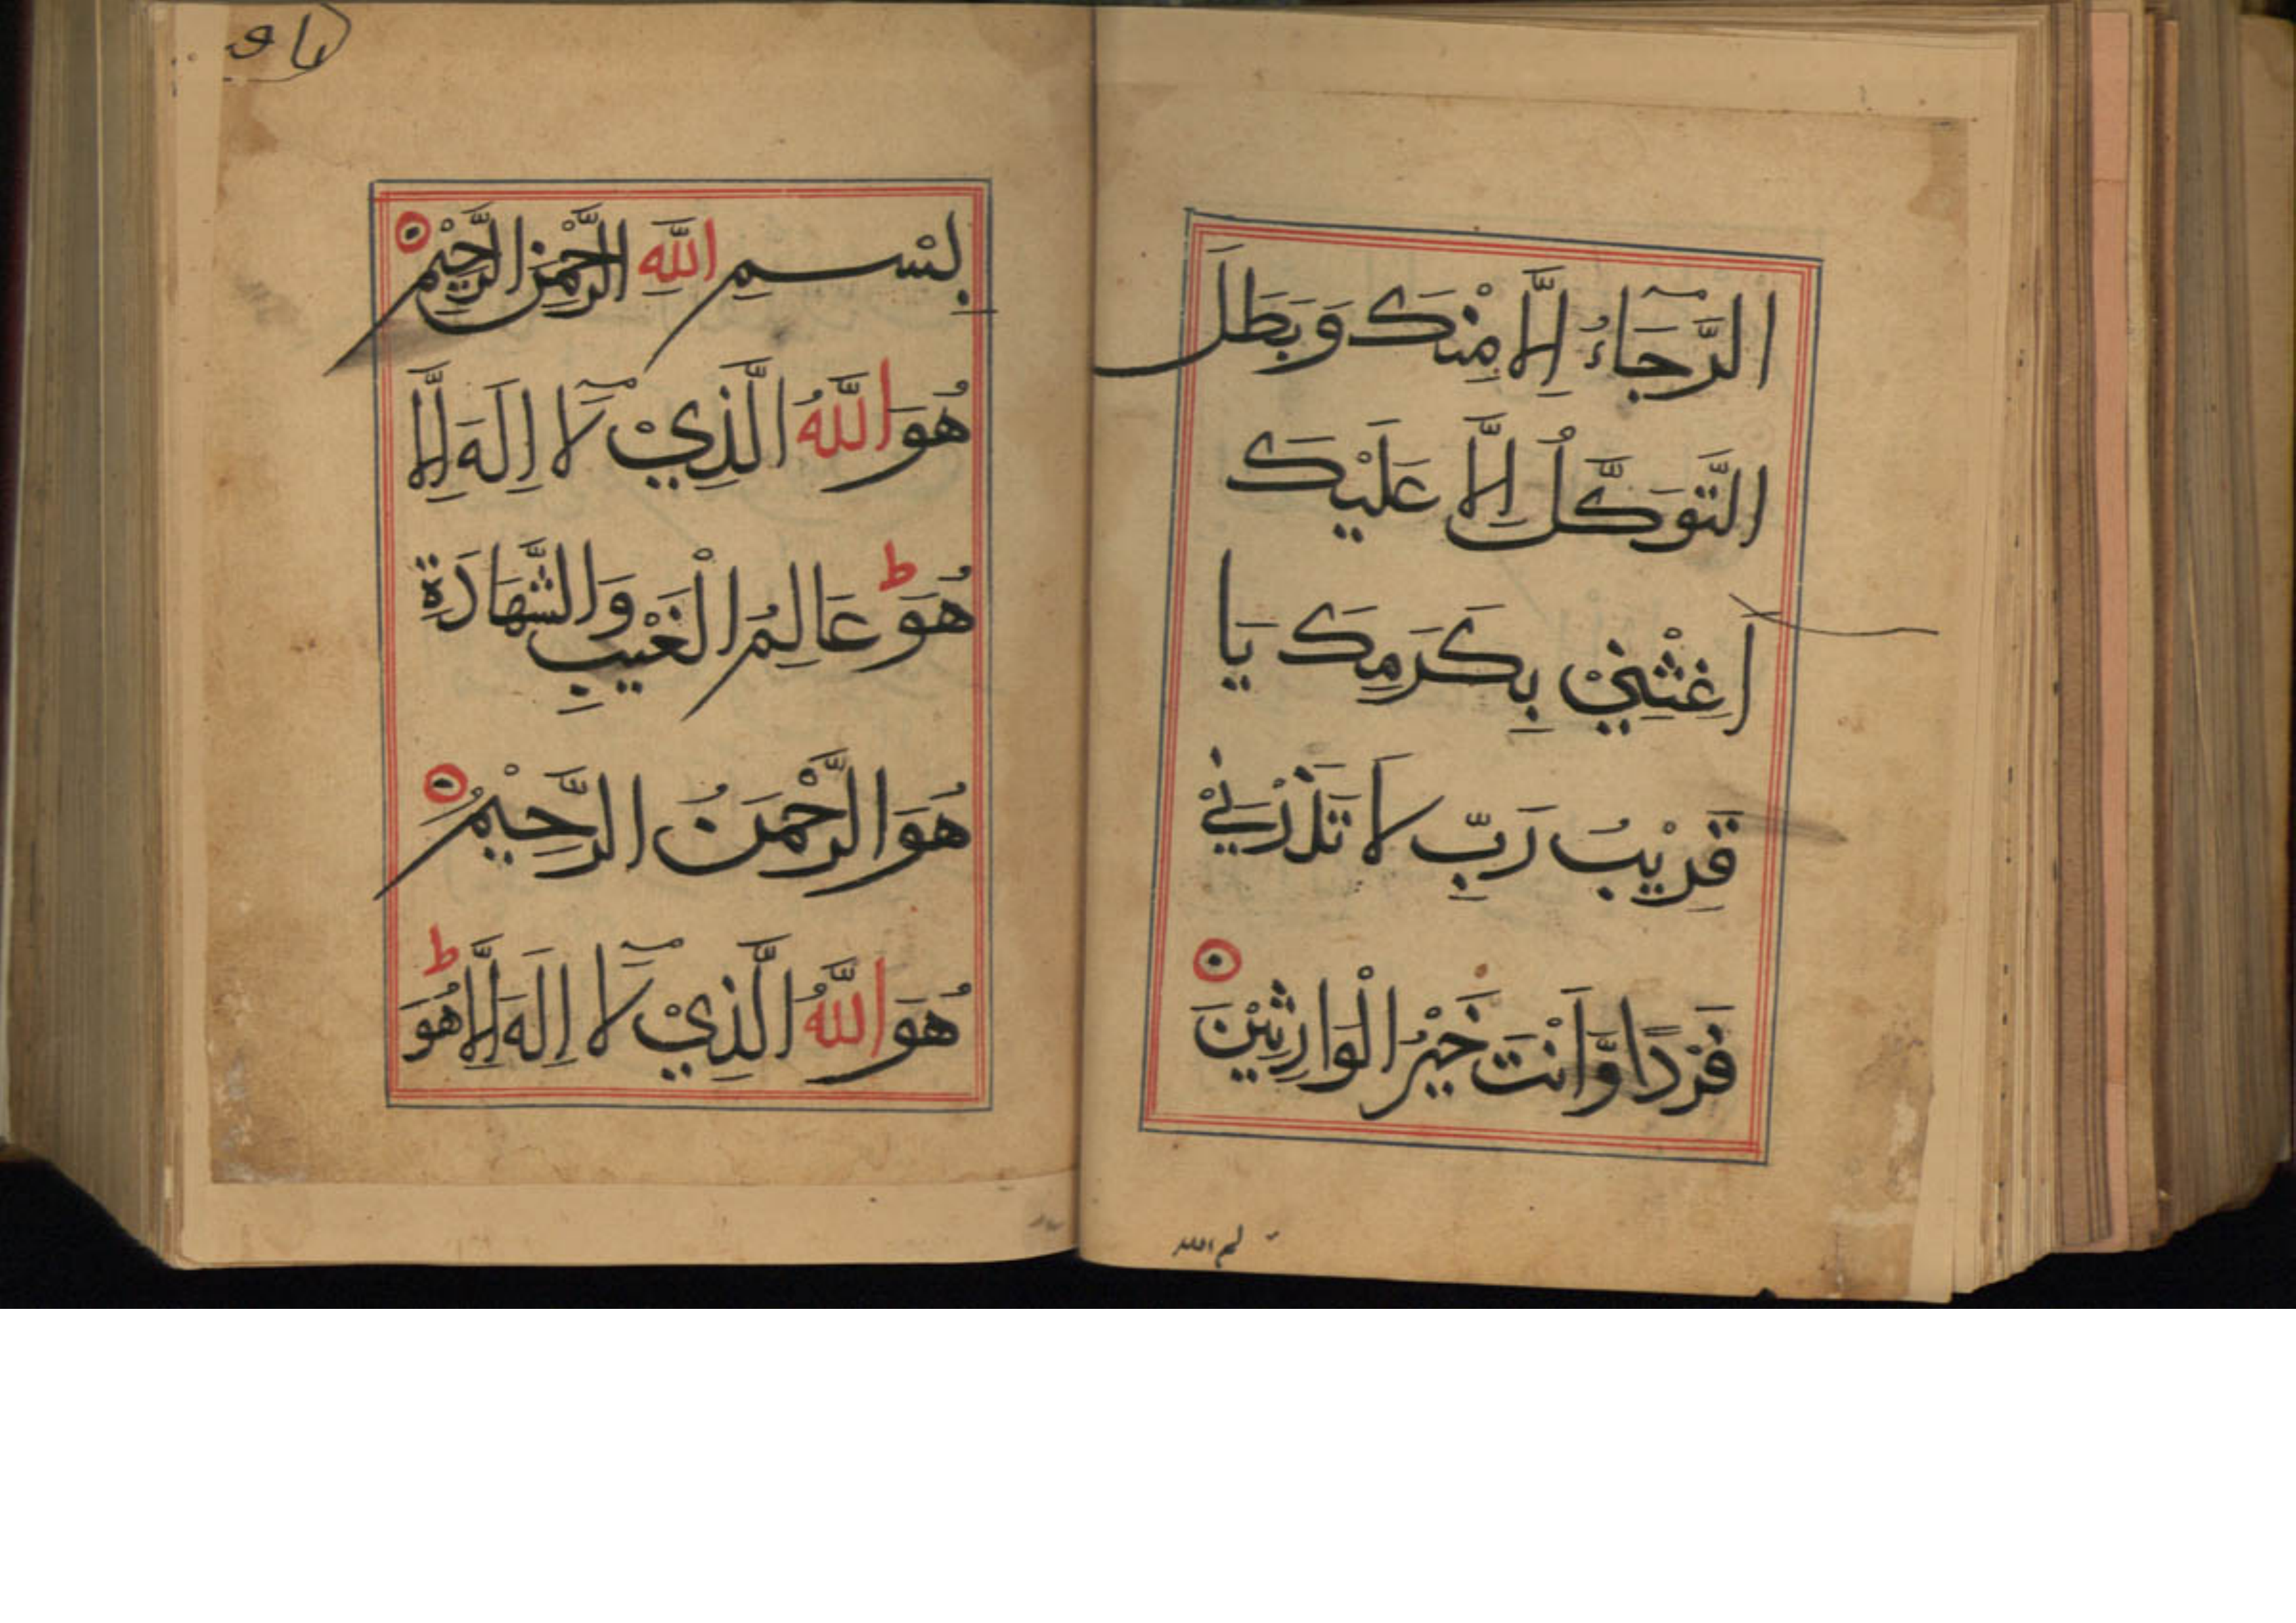 الرَّجَآءُ اِلَّا مِنْكَ وَبَطَلَ
التَّوَكُّلُ اِلَّا عَلَيْكَ
اَغِثْنِيْ بِكَرَمِكَ يَا
قَرِيْبُ رَبِّ لَا تَذَرْنِيْ
فَرْدًا وَّاَنْتَ خَيْرُ الْوَارِثِيْنَ
بِسْمِ اللّٰهِ الرَّحْمٰنِ الرَّحِيْمِ
هُوَ اللّٰهُ الَّذِيْ لَآ اِلَهَ اِلَّا
هُوَ ط عَالِمُ الْغَيْبِ وَالشَّهَادَةِ
هُوَ الرَّحْمَنُ الرَّحِيْمُ
هُوَ اللّٰهُ الَّذِيْ لَآ اِلَهَ اِلَّا هُوَ ط